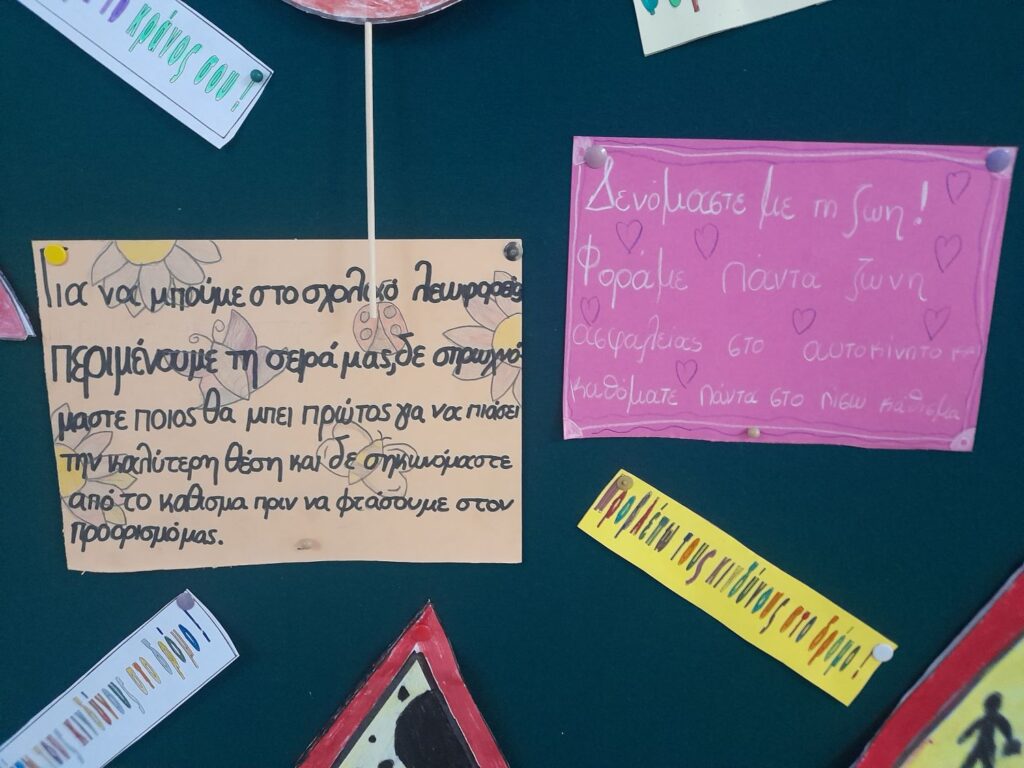 κράνος σου!
Για να μπούμε στο σχολικό λεωφορείο,
περιμένουμε τη σειρά μας, δε σπρωχνό-
μαστε ποιος θα μπει πρώτος για να πιάσει
την καλύτερη θέση και δε σηκωνόμαστε
από το κάθισμα πριν να φτάσουμε στον
προορισμό μας.
Δενόμαστε με τη ζωη!
Φοράμε πάντα ζωνη
ασφαλείας στο αυτοκίνητο και
καθόματε πάντα στο πίσω κάθισμα
Προβλέπω τους κινδύνους στο δρόμο!
κινδύνους στο δρόμο!